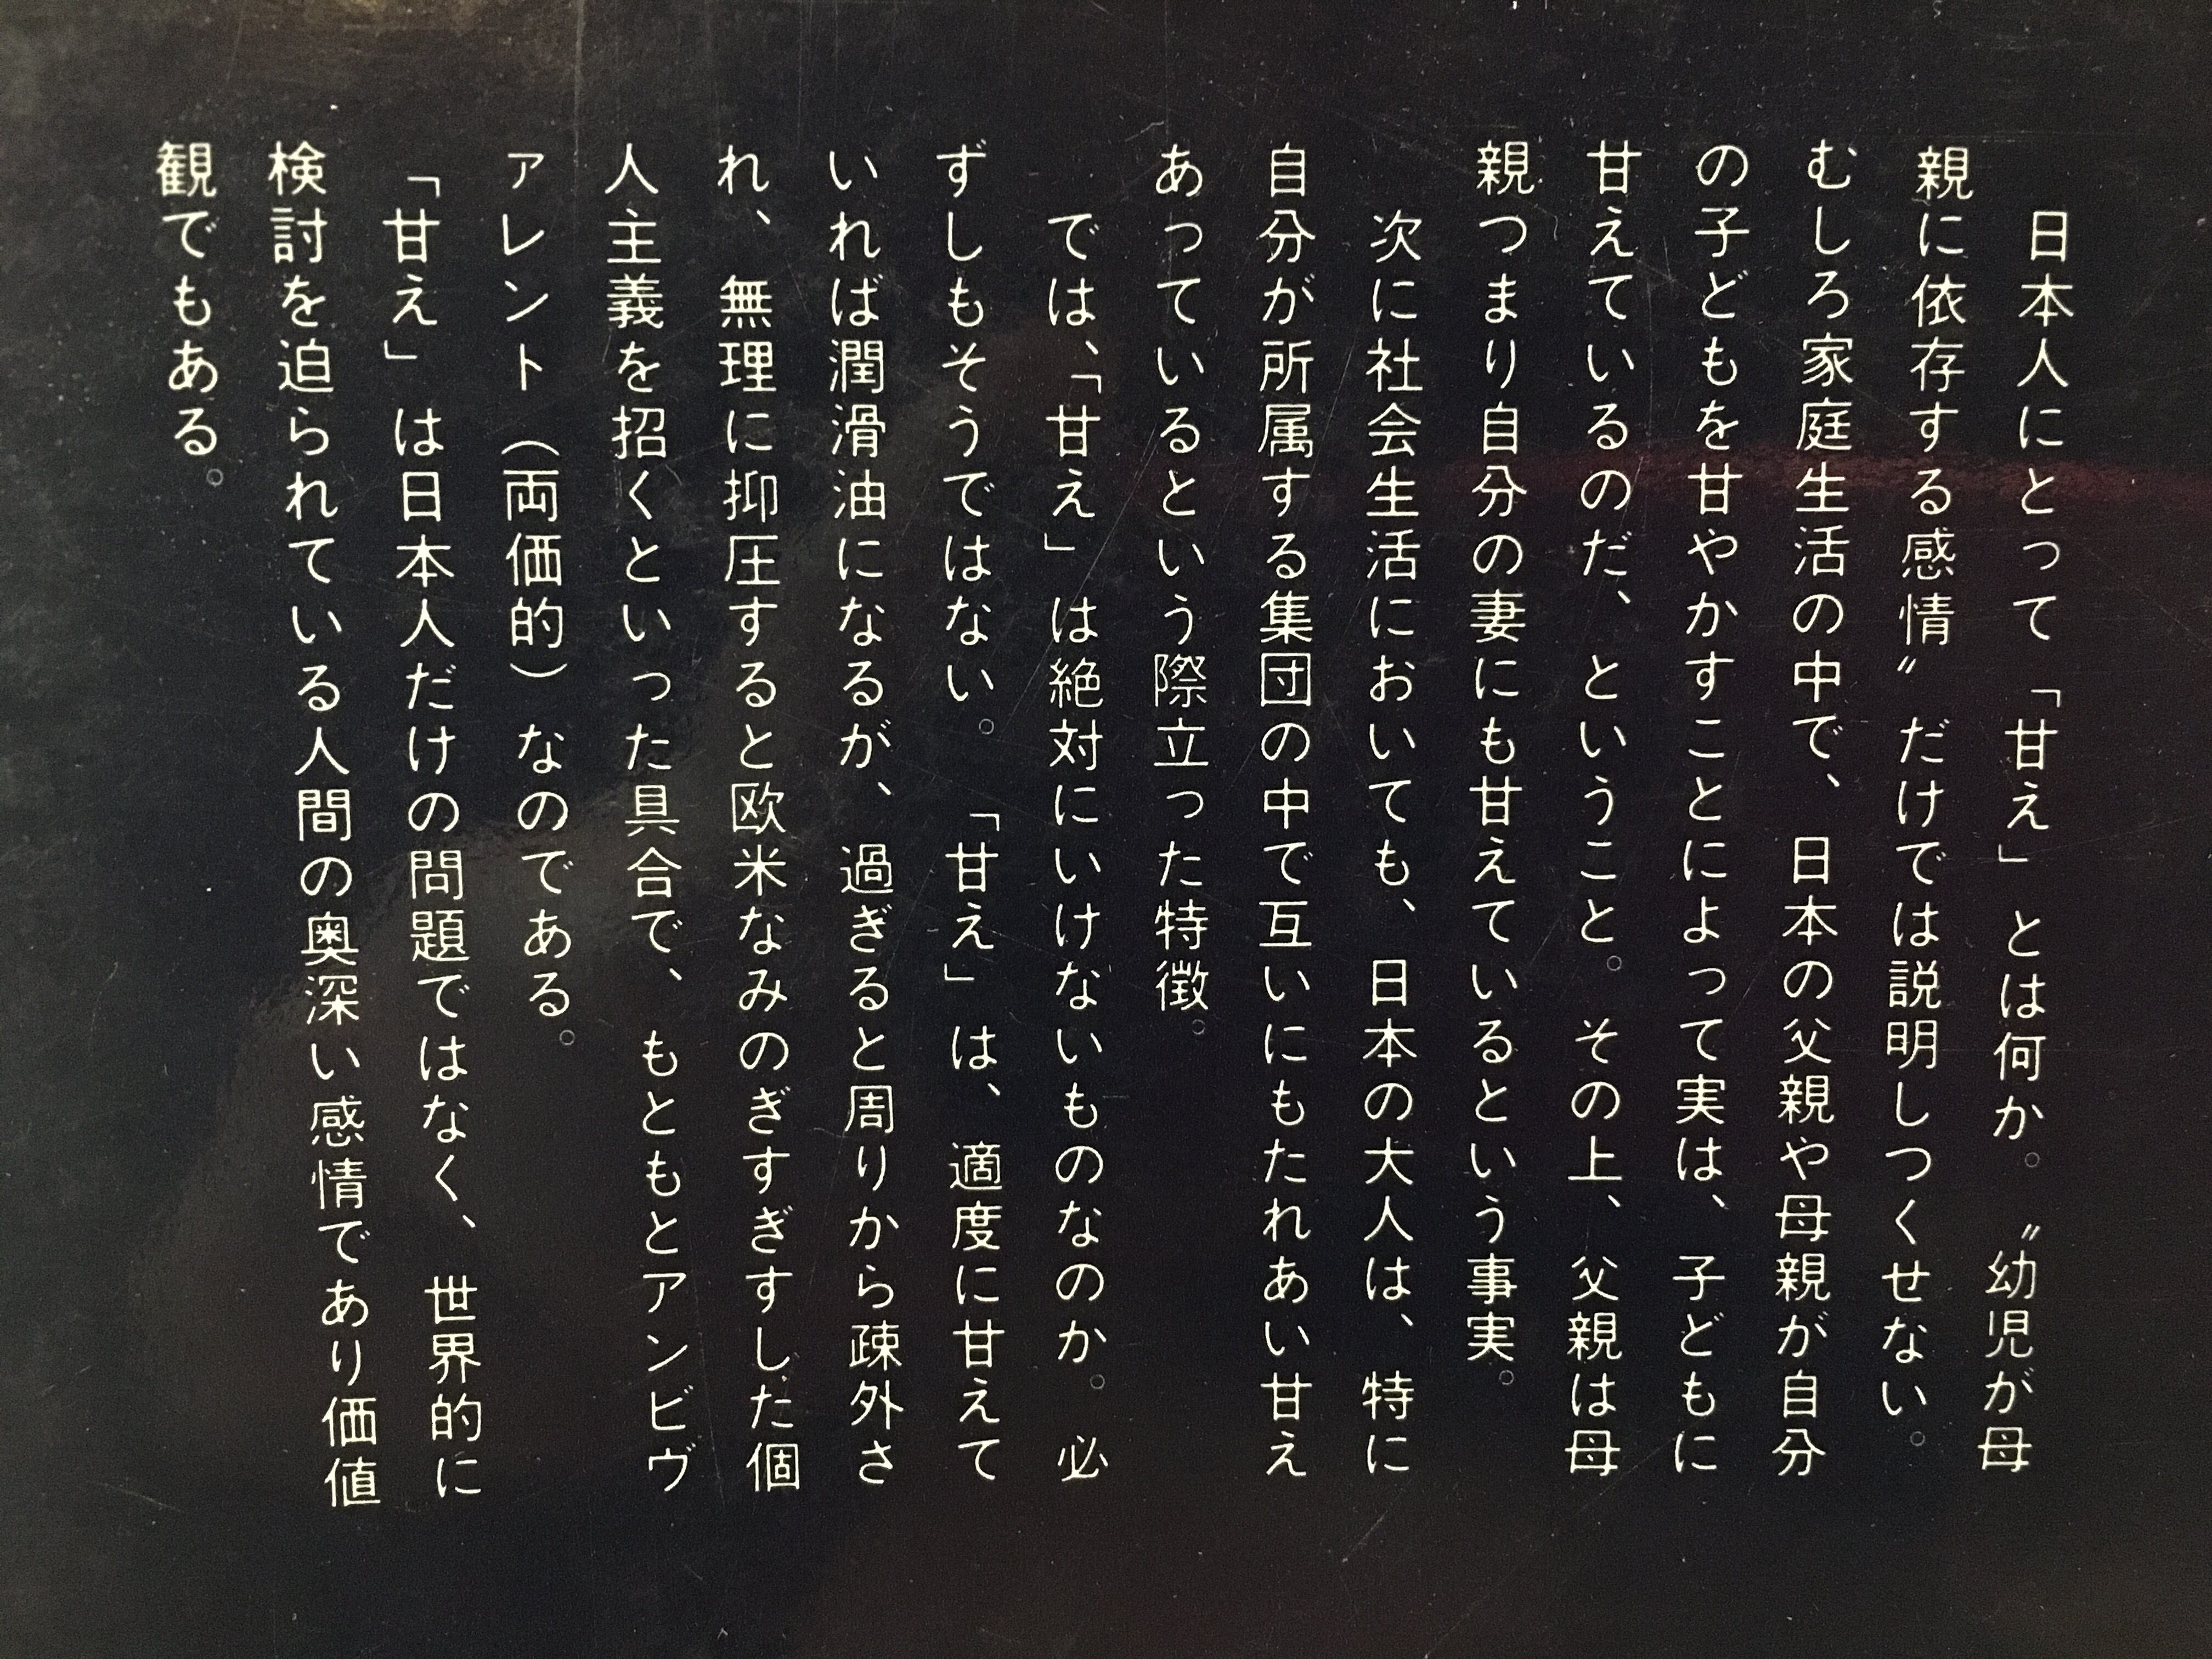 日本人にとって「甘え」とは何か。〝幼児が母
親に依存する感情〟だけでは説明しつくせない。
むしろ家庭生活の中で、日本の父親や母親が自分
の子どもを甘やかすことによって実は、子どもに
甘えているのだ、ということ。その上、父親は母
親つまり自分の妻にも甘えているという事実。
次に社会生活においても、日本の大人は、特に
自分が所属する集団の中で互いにもたれあい甘え
あっているという際立った特徴。
では、「甘え」は絶対にいけないものなのか。必
ずしもそうではない。「甘え」は、適度に甘えて
いれば潤滑油になるが、過ぎると周りから疎外さ
れ、無理に抑圧すると欧米なみのぎすぎすした個
人主義を招くといった具合で、もともとアンビヴ
ァレント（両価的）なのである。
「甘え」は日本人だけの問題ではなく、世界的に
検討を迫られている人間の奥深い感情であり価値
観でもある。